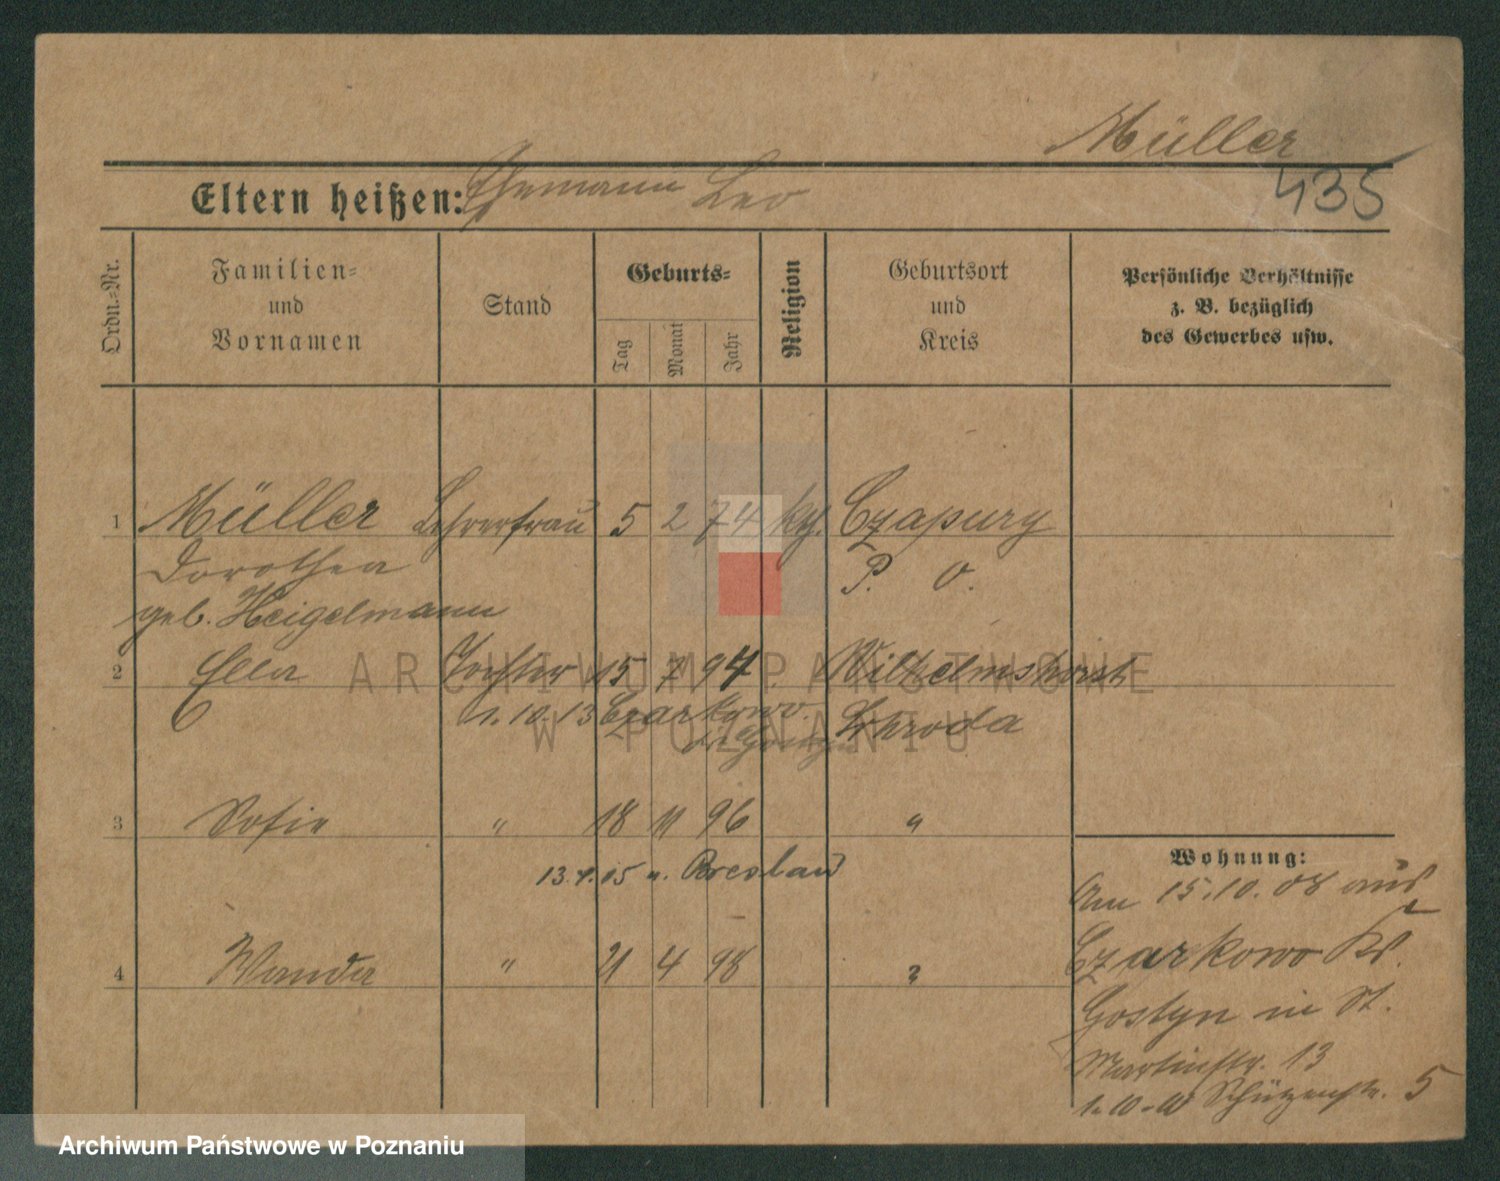 Müller
435
Eltern heißen: Ehemann Leo
Ordn.-Nr.
Familien-
und
Vornamen
Stand
Geburts-
Tag
Monat
Jahr
Religion
Geburtsort
und
Kreis
Persönliche Verhältnisse
z. B. bezüglich
des Gewerbes usw.
1 Müller Lehrerfrau 5 2 74 kth. Czapury
Dorothea P. O.
geb. Heigelmann
2 Ella Tochter 15 7 94 Wilhelmshorst
1.10.13 Czarkowo Schroda
3 Sofie " 18 11 96 "
13.4.05 n. Breslau
4 Wanda " 21 4 98 "
Wohnung:
Am 15.10.08 aus
Czarkowo Kr.
Gostyn in St.
Martinstr. 13
1.10. Schützenstr. 5
ARCHIWUM PAŃSTWOWE
W POZNANIU
Archiwum Państwowe w Poznaniu